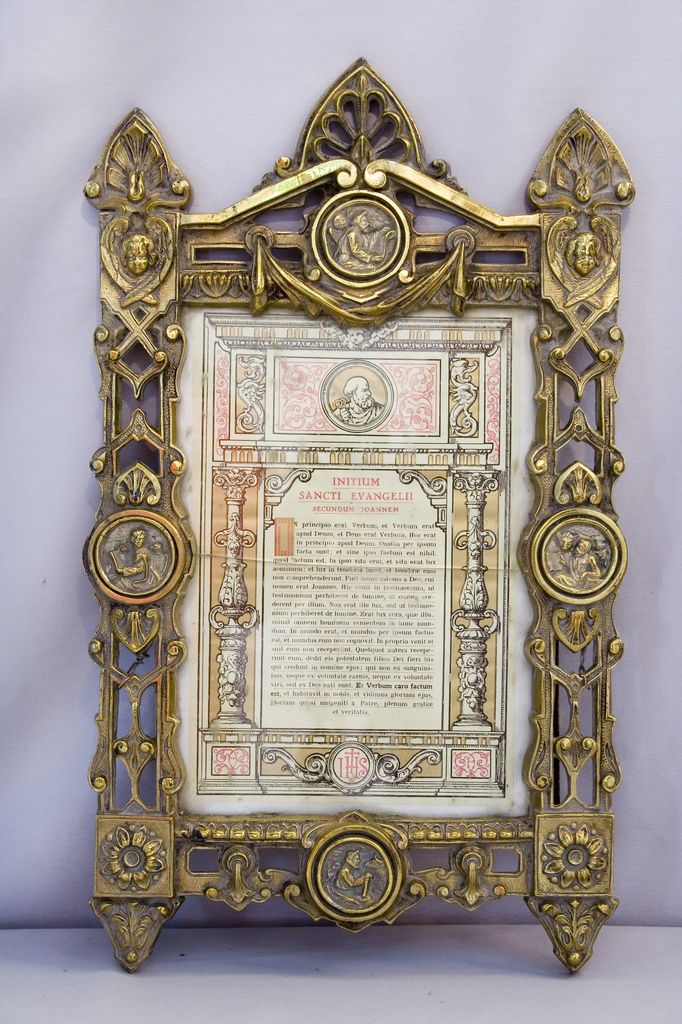 INITIUM
SANCTI EVANGELII
SECUNDUM JOANNEM
IN principio erat Verbum, et Verbum erat
apud Deum, et Deus erat Verbum. Hoc erat
in principio apud Deum. Omnia per ipsum
facta sunt: et sine ipso factum est nihil,
quod factum est. In ipso vita erat, et vita erat lux
hominum: et lux in tenebris lucet, et tenebræ eam
non comprehenderunt. Fuit homo missus a Deo, cui
nomen erat Joannes. Hic venit in testimonium, ut
testimonium perhiberet de lumine, ut omnes cre-
derent per illum. Non erat ille lux, sed ut testimo-
nium perhiberet de lumine. Erat lux vera, quæ illu-
minat omnem hominem venientem in hunc mun-
dum. In mundo erat, et mundus per ipsum factus
est, et mundus eum non cognovit. In propria venit et
sui eum non receperunt. Quotquot autem recepe-
runt eum, dedit eis potestatem filios Dei fieri his
qui credunt in nomine ejus: qui non ex sanguini-
bus, neque ex voluntate carnis, neque ex voluntate
viri, sed ex Deo nati sunt. Et Verbum caro factum
est, et habitavit in nobis, et vidimus gloriam ejus,
gloriam quasi unigeniti a Patre, plenum gratiæ
et veritatis.
IHS